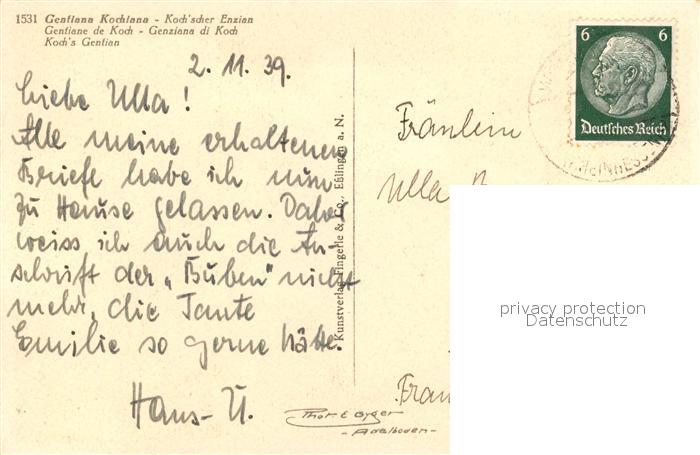 1531 Gentiana Kochiana - Koch'scher Enzian
Gentiane de Koch - Genziana di Koch
Koch's Gentian
2. 11. 39.
Liebe Ulla!
Alle meine erhaltenen
Briefe habe ich nun
zu Hause gelassen. Daher
weiss ich auch die An-
schrift der „Buben" nicht
mehr, die Tante
Emilie so gerne hätte.
Hans-U.
Kunstverlag Fingerle & Co., Eßlingen a. N.
Phot E Gyger
- Adelboden -
6 6
Deutsches Reich
Fräulein
Ulla
privacy protection
Datenschutz